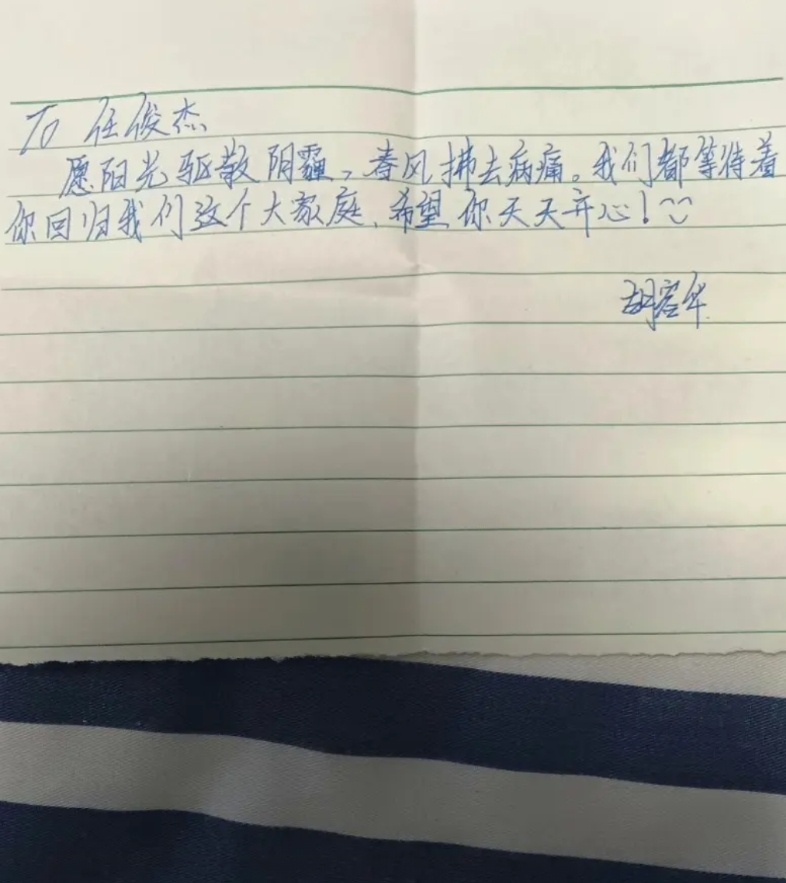 To 任俊杰
愿阳光驱散阴霾，春风拂去病痛。我们都等待着
你回归我们这个大家庭，希望你天天开心！
胡容华